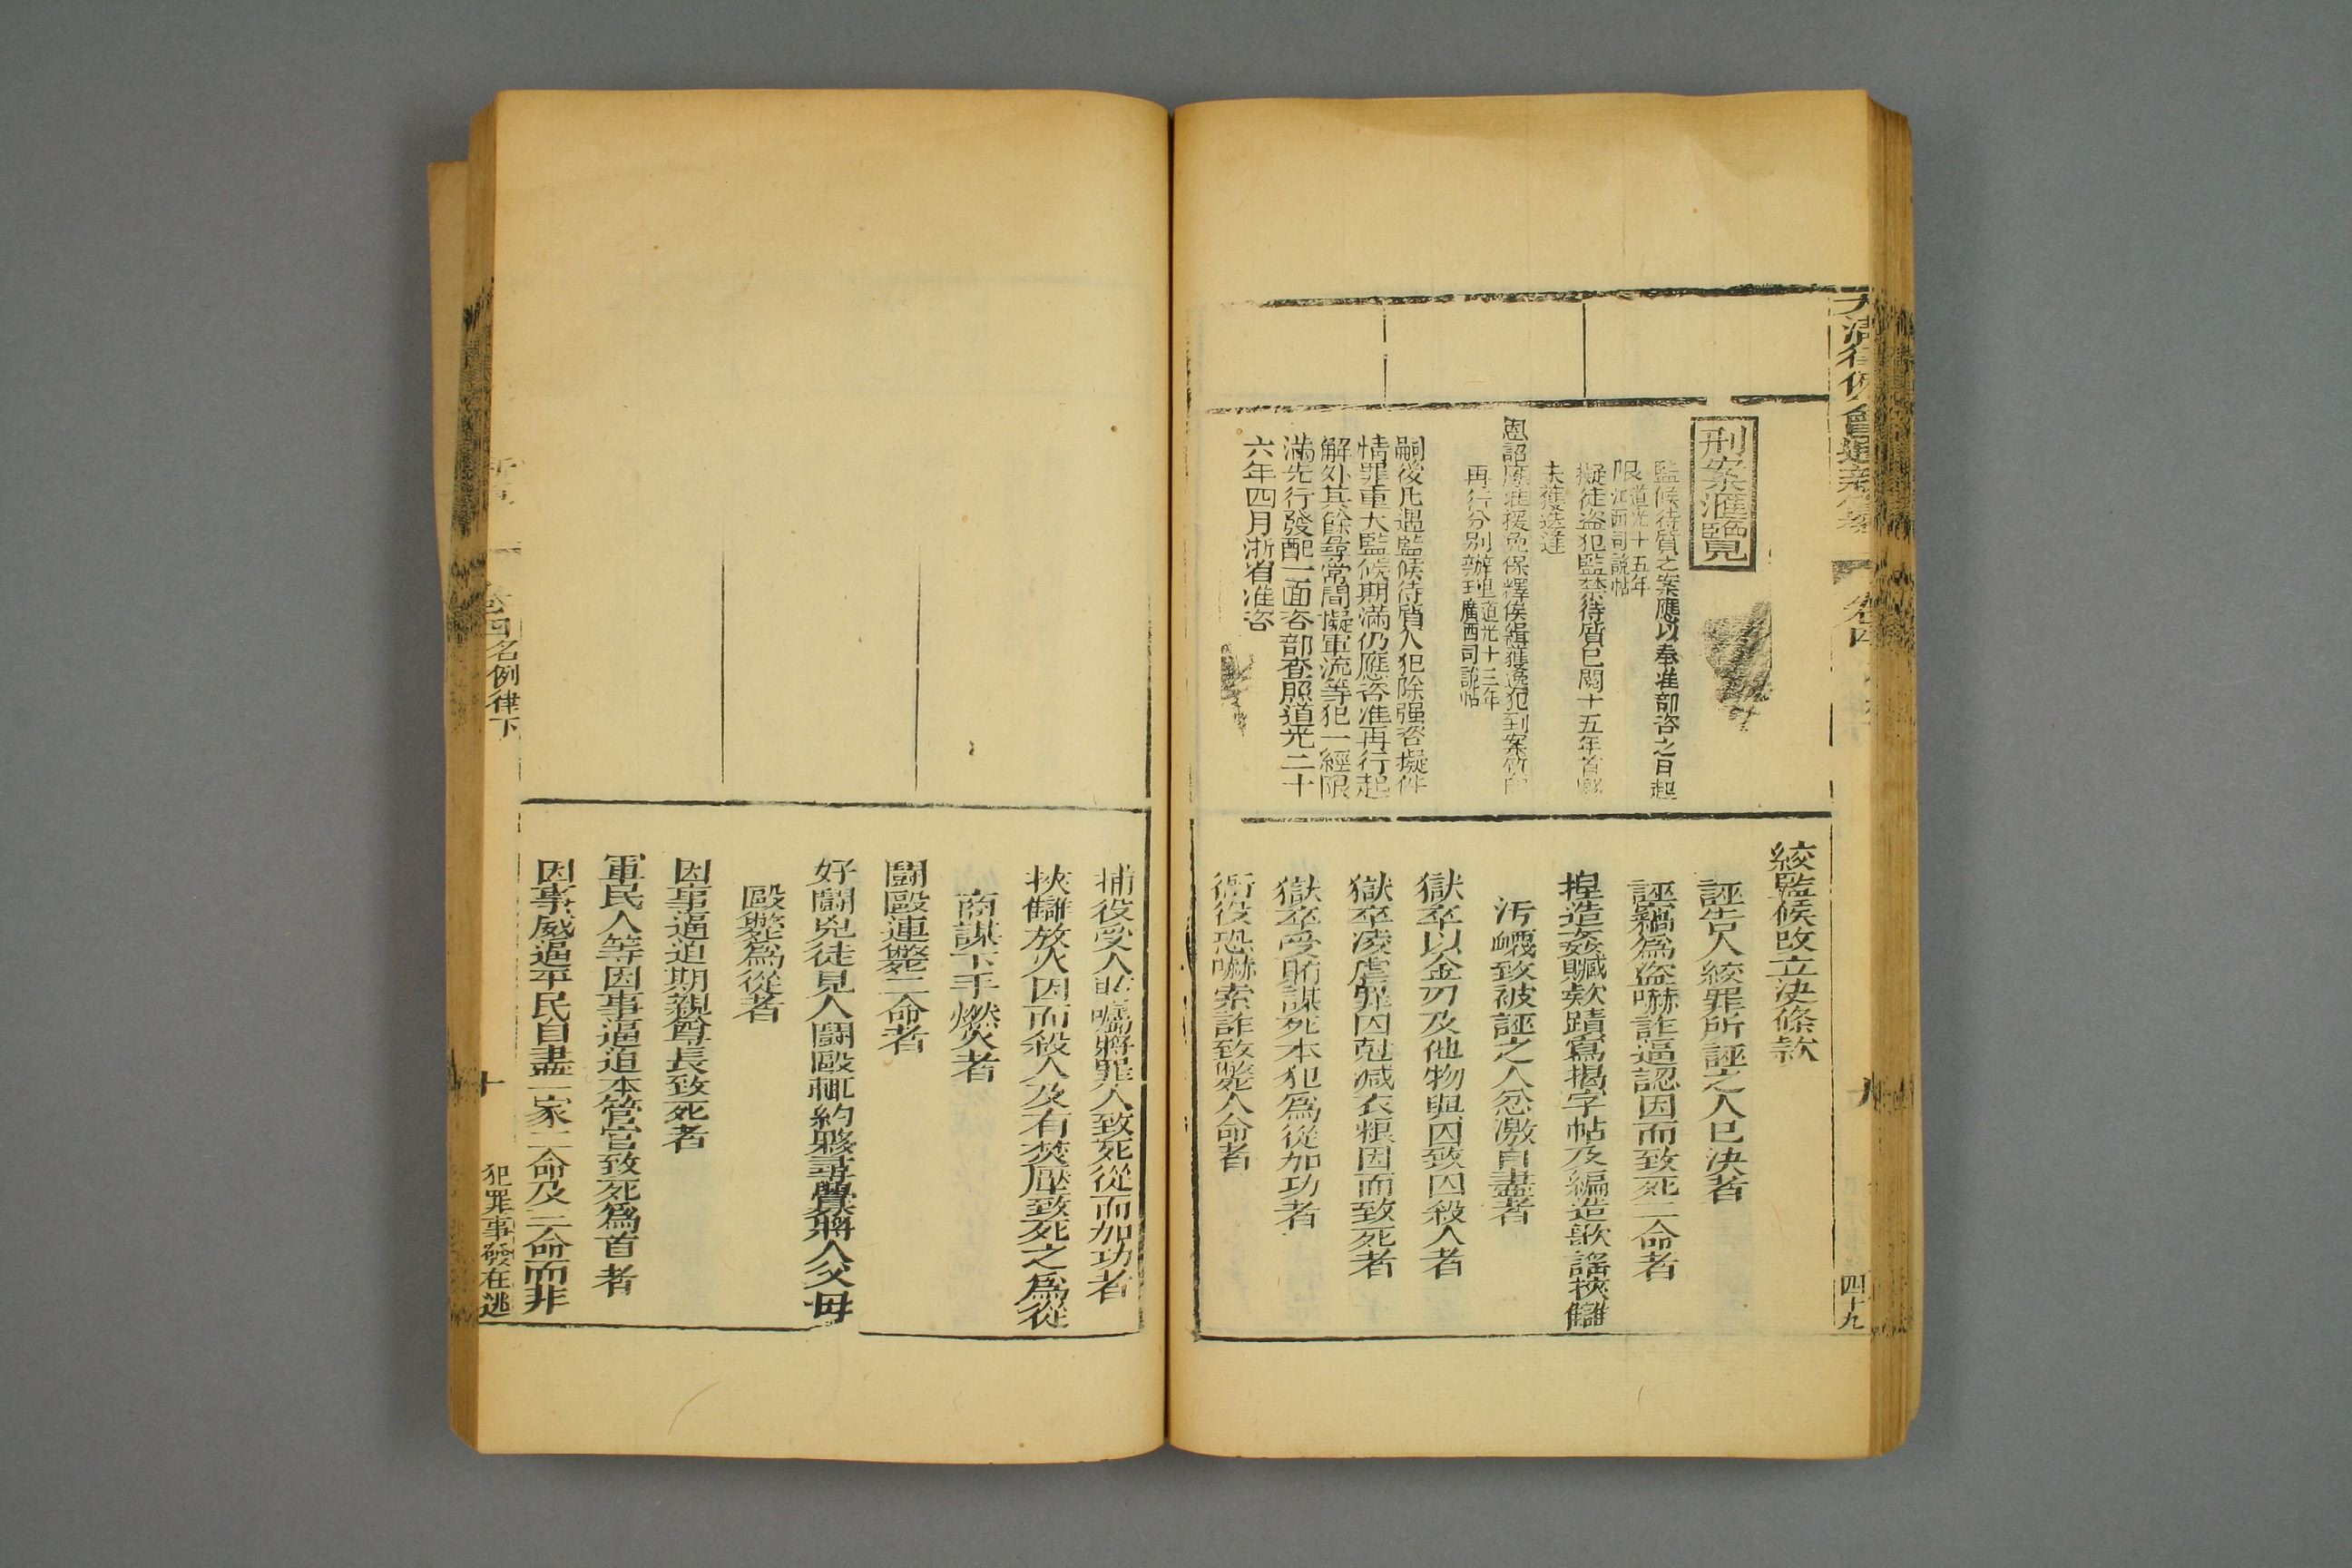 大清律例會通新纂
卷四
四十九
刑案滙覽
監候待質之案應以奉准部咨之日起
限道光十五年江西司說帖
擬徒盜犯監禁待質已閱十五年首夥
未獲送逢
恩詔應准援免保釋俟緝獲逸犯到案
再行分別辦理道光十三年廣西司說帖
嗣後凡遇監候待質人犯除强盜擬
情罪重大監候期滿仍應咨准再行起
解外其餘尋常問擬軍流等犯一經限
滿先行發配一面咨部查照道光二十
六年四月浙省准咨
絞監候改立決條款
誣告人絞罪所誣之人已決者
誣竊爲盜嚇詐逼認因而致死二命者
捏造姦贓欵蹟寫揭字帖及編造歌謠挾讎
汚衊致被誣之人忿激自盡者
獄卒以金刃及他物與囚致囚殺人者
獄卒凌虐罪囚尅减衣粮因而致死者
獄卒受賄謀死本犯爲從加功者
衙役恐嚇索詐致斃人命者
捕役受人賄囑將罪人致死從而加功者
挾讎放火因而殺人及有焚壓致死之爲從
商謀下手燃火者
鬪毆連斃二命者
好鬪兇徒見人鬪毆輒約夥尋釁將人父母
毆斃爲從者
因事逼迫期親尊長致死者
軍民人等因事逼迫本管官致死爲首者
因事威逼平民自盡一家二命及三命而非
名例律下
十
犯罪事發在逃